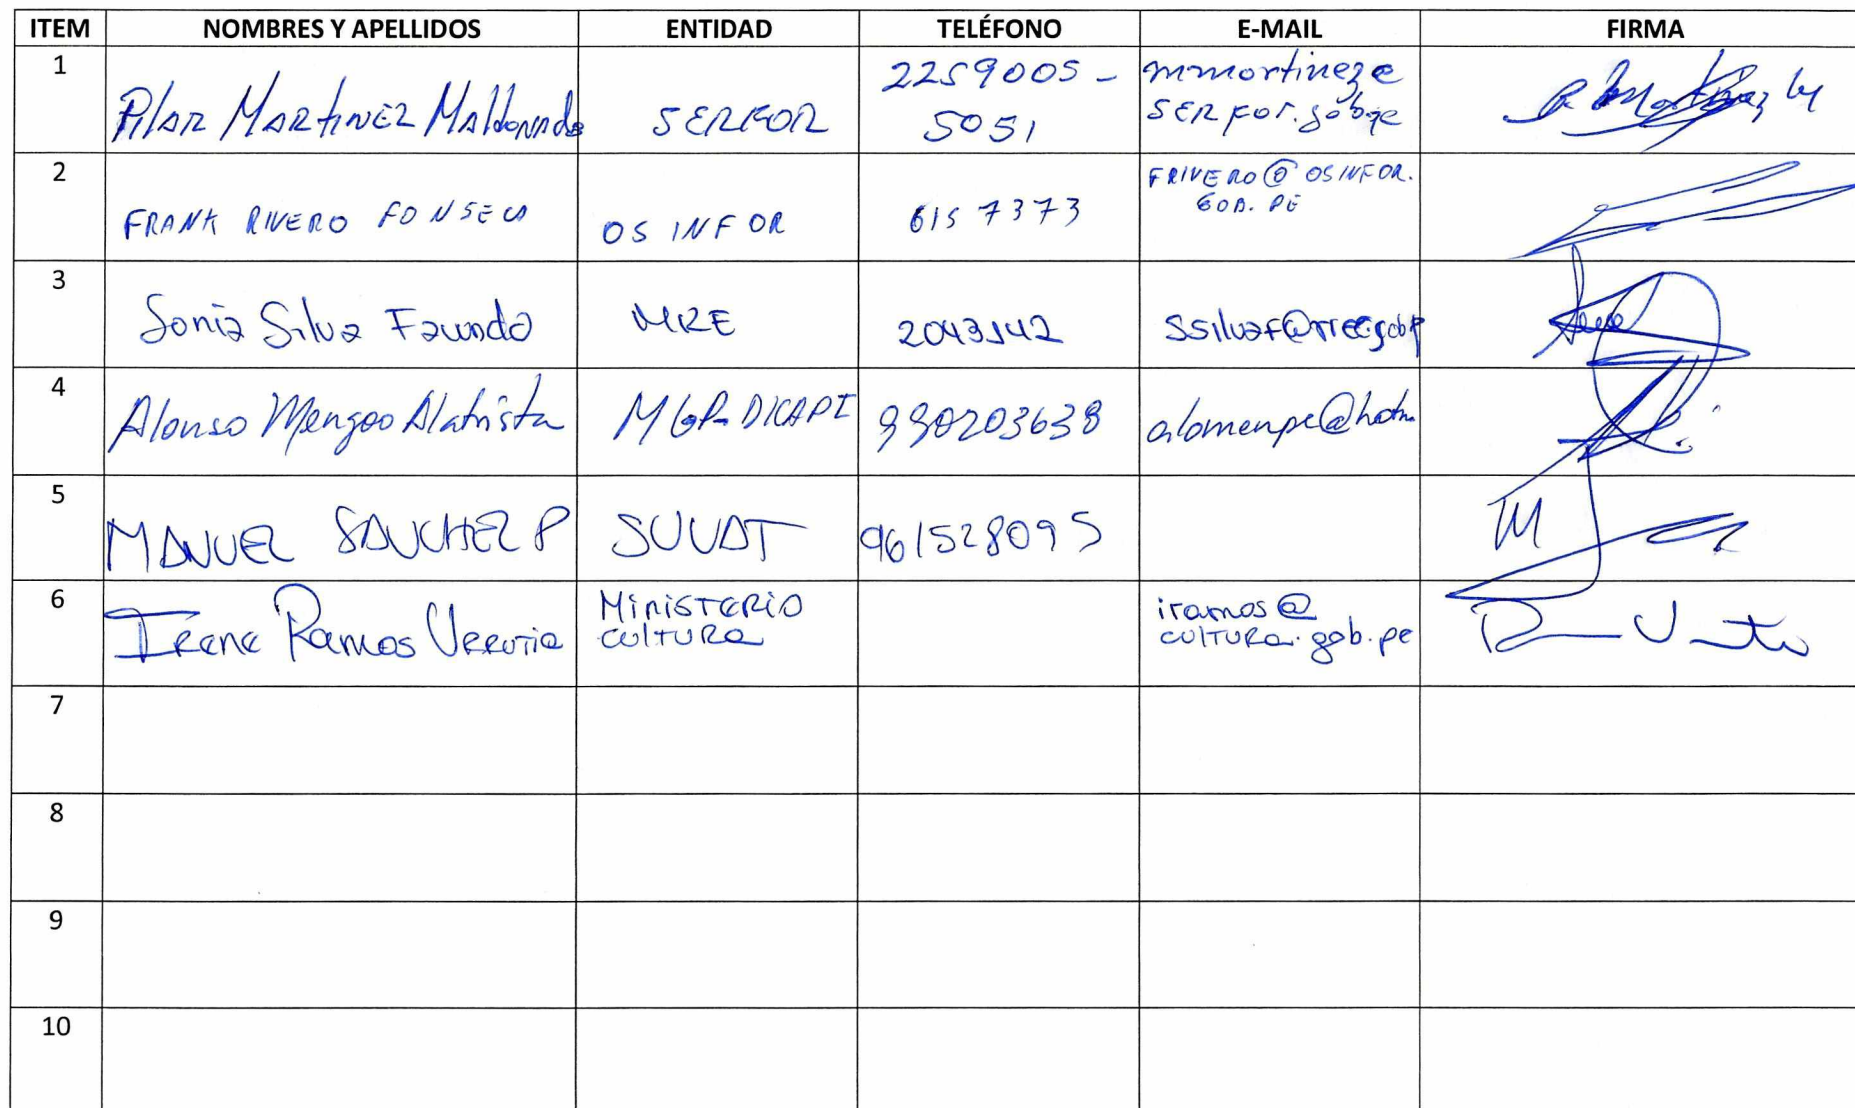 ITEM NOMBRES Y APELLIDOS ENTIDAD TELÉFONO E-MAIL FIRMA
1 Pilar Martinez Maldonado SERFOR 2259005 - 5051 mmartinez@ serfor.gob.pe
2 FRANK RIVERO FONSECA OSINFOR 6157373 FRIVERO@OSINFOR. GOB.PE
3 Sonia Silva Facundo MRE ssilvaf@rree.gob.p
4 Alonso Mengoo Alatrista MGP-DICAPI 990203638 alomenpe@hotm
5 MANUEL SANCHEZ P SUNAT 961528095
6 Irene Ramos Urrutia Ministerio Cultura iramos@ cultura.gob.pe
7
8
9
10